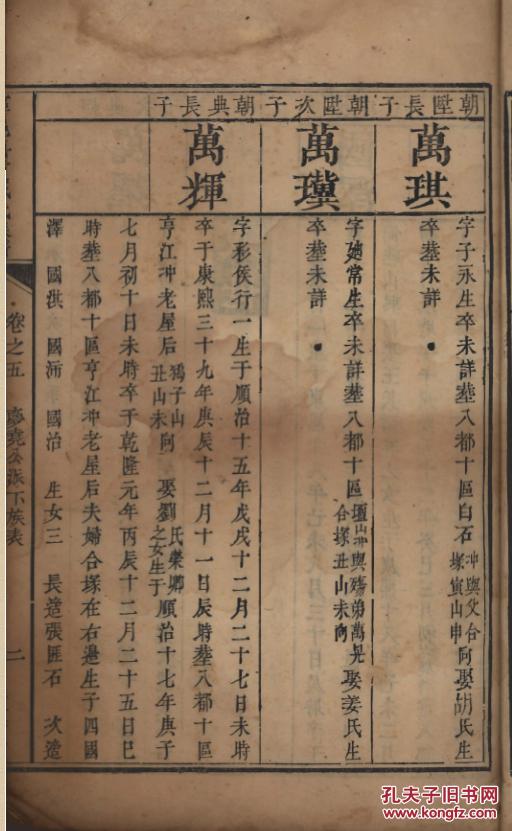 朝陞長子
萬琪
字子永生卒未詳塟八都十區白石冲與父合塚寅山申向娶胡氏生
卒塟未詳
朝陞次子
萬瓚
常生卒未詳塟八都十區壇山冲與殤弟萬晃合塚丑山未向娶姜氏生
卒塟未詳
朝典長子
萬輝
字彩侯行一生于順治十五年戊戌十二月二十七日未時
卒于康熙三十九年庚辰十二月十一日辰時塟八都十區
亨江冲老屋后獨子山丑山未向娶劉氏榮卿之女生于順治十七年庚子
七月初十日未時卒于乾隆元年丙辰十二月二十五日巳
時塟八都十區亨江冲老屋后夫婦合塚在右邊生子四國
澤 國淇 國沛 國治 生女三 長適張匪石 次適
卷之五
公派下族表
二
孔夫子旧书网
KONGFZ.COM